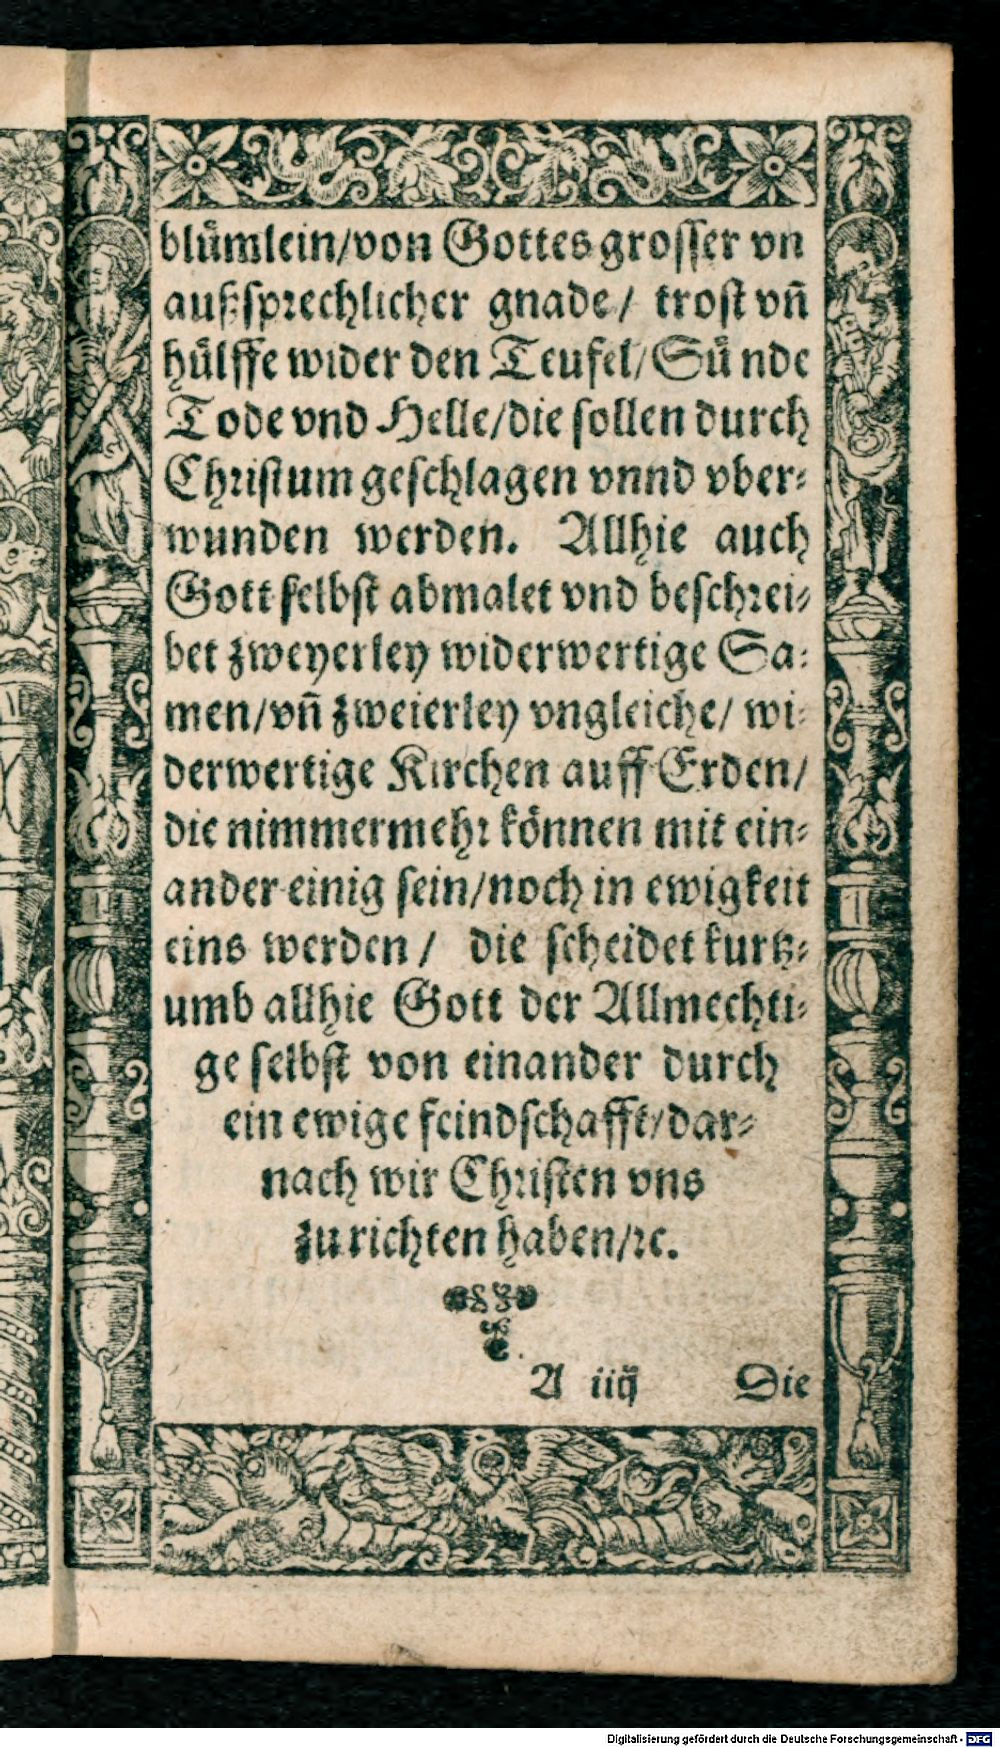 blümlein/von Gottes grosser vn
außsprechlicher gnade/ trost vñ
hülffe wider den Teufel/Sünde
Tode vnd Helle/die sollen durch
Christum geschlagen vnnd vber-
wunden werden. Allhie auch
Gott selbst abmalet vnd beschrei-
bet zweyerley widerwertige Sa-
men/vñ zweierley vngleiche/ wi-
derwertige Kirchen auff Erden/
die nimmermehr können mit ein-
ander einig sein/noch in ewigkeit
eins werden/ die scheidet kurtz-
umb allhie Gott der Allmechti-
ge selbst von einander durch
ein ewige feindschafft/dar-
nach wir Christen vns
zu richten haben/ꝛc.
A iiij Die
Digitalisierung gefördert durch die Deutsche Forschungsgemeinschaft - DFG